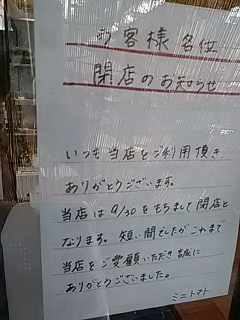 お客様各位
閉店のお知らせ
いつも当店をご利用頂き
ありがとうございます。
当店は9/30をもちまして閉店と
なります。短い間でしたがこれまで
当店をご愛顧いただき誠に
ありがとうございました。
ミニトマト